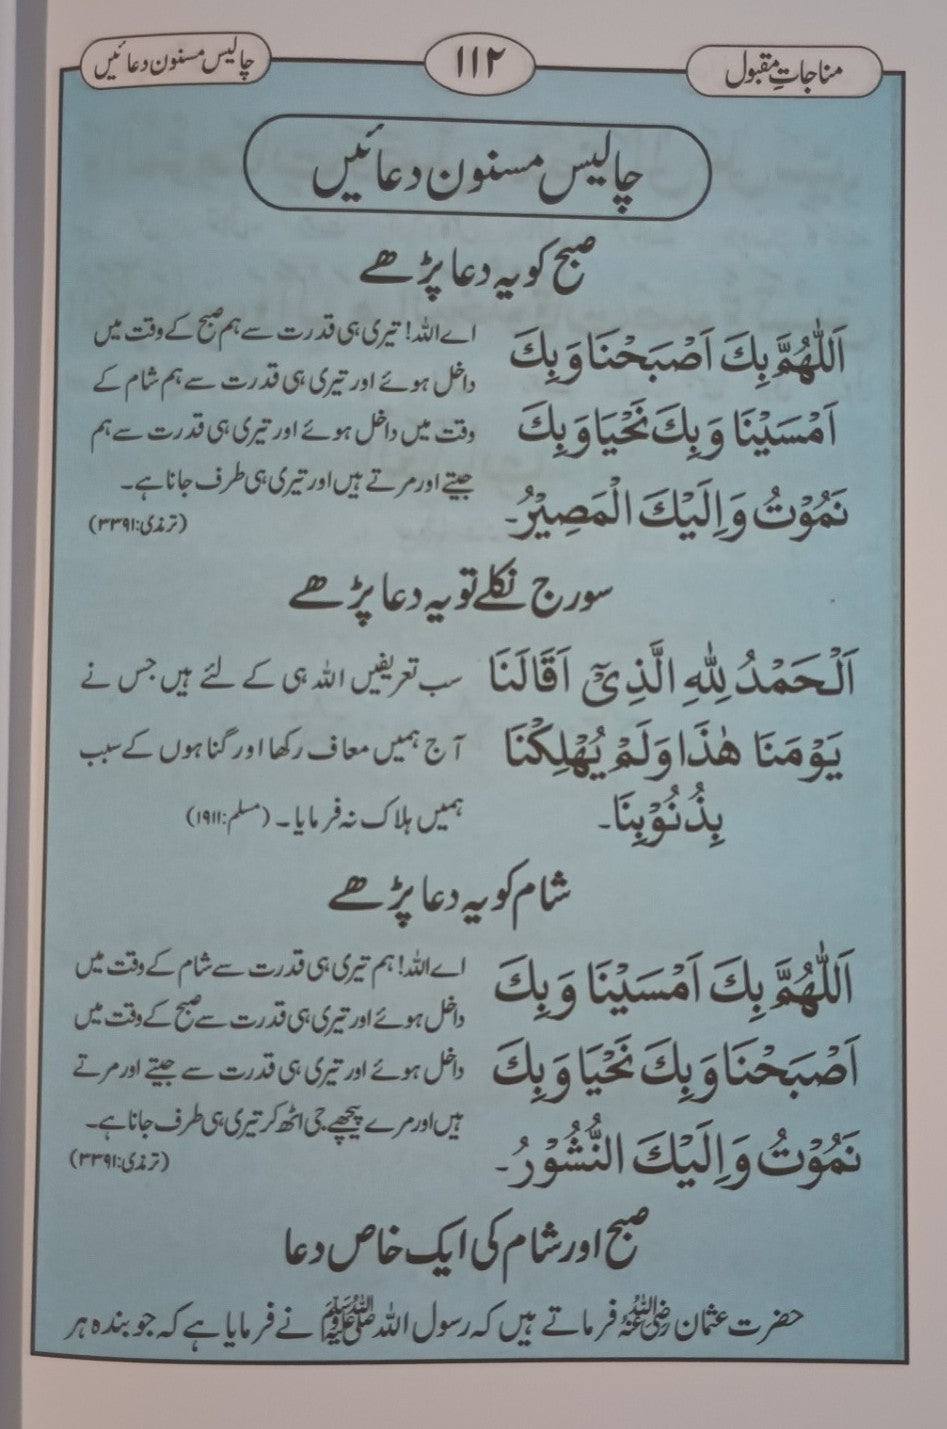 مناجاتِ مقبول
۱۱۲
چالیس مسنون دعائیں
چالیس مسنون دعائیں
صبح کو یہ دعا پڑھے
اَللّٰهُمَّ بِكَ اَصْبَحْنَا وَبِكَ
اَمْسَيْنَا وَبِكَ نَحْيَا وَبِكَ
نَمُوْتُ وَاِلَيْكَ الْمَصِيْرُ۔
اے اللہ! تیری ہی قدرت سے ہم صبح کے وقت میں
داخل ہوئے اور تیری ہی قدرت سے ہم شام کے
وقت میں داخل ہوئے اور تیری ہی قدرت سے ہم
جیتے اور مرتے ہیں اور تیری ہی طرف جانا ہے۔
(ترمذی:۳۳۹۱)
سورج نکلے تو یہ دعا پڑھے
اَلْحَمْدُ لِلّٰهِ الَّذِيْٓ اَقَالَنَا
يَوْمَنَا هٰذَا وَلَمْ يُهْلِكْنَا
بِذُنُوْبِنَا۔
سب تعریفیں اللہ ہی کے لئے ہیں جس نے
آج ہمیں معاف رکھا اور گناہوں کے سبب
ہمیں ہلاک نہ فرمایا۔ (مسلم:۱۹۱۱)
شام کو یہ دعا پڑھے
اَللّٰهُمَّ بِكَ اَمْسَيْنَا وَبِكَ
اَصْبَحْنَا وَبِكَ نَحْيَا وَبِكَ
نَمُوْتُ وَاِلَيْكَ النُّشُوْرُ۔
اے اللہ! ہم تیری ہی قدرت سے شام کے وقت میں
داخل ہوئے اور تیری ہی قدرت سے صبح کے وقت میں
داخل ہوئے اور تیری ہی قدرت سے جیتے اور مرتے
ہیں اور مرے پیچھے جی اٹھ کر تیری ہی طرف جانا ہے۔
(ترمذی:۳۳۹۱)
صبح اور شام کی ایک خاص دعا
حضرت عثمان رضی اللہ عنہ فرماتے ہیں کہ رسول اللہ ﷺ نے فرمایا ہے کہ جو بندہ ہر